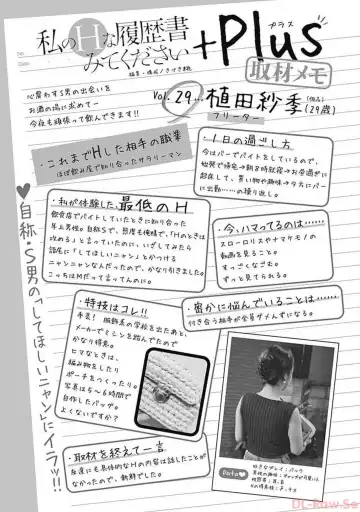 私のHな履歴書
みてください
+Plus
プラス
取材メモ
心震わす男の出会いを
お酒の場に求めて―
今夜も頑張って飲んできます!!
Vol.29…植田紗季
(仮名)
(29歳)
フリーター
・これまでHした相手の職業
ほぼ飲み屋で知り合ったサラリーマン
・1日の過ごし方
今はバーでバイトをしているので、
始発で帰宅→朝8時就寝→お昼過ぎに
起床して、買い物や趣味→夕方にバー
に出勤……の繰り返し。
・私が体験した、最低のH
飲食店でバイトしていたときに知り合った
年上男性。自称Sで、態度も俺様で、「Hのときは
攻める」と言っていたのに、いざしてみたら
語尾に「してほしいニャン」とかつける
ニャンニャンなんだったので、かなり引きました。
こっちはMだって言ってんのに。
・今、ハマってるのは……
スローロリスやナマケモノの
動画を見ること。
すっごくなごむ。
ずっと見てられる。
・密かに悩んでいることは……
付き合う相手が全員ダメんずになる。
・特技はコレ!!
手芸! 服飾系の学校を出たあと、
メーカーでミシンを踏んでたので
かなり得意。
ヒマなときは、
編み物をしたり
ポーチをつくったり。
写真は5〜6時間で
自作したバッグ。
よくないですか?
・取材を終えて一言
友達にも具体的なHの内容は話したことが
なかったので、新鮮でした。
♥自称・S男の「してほしいニャン」にイラッ!!
Data♥
好きなプレイ:バック